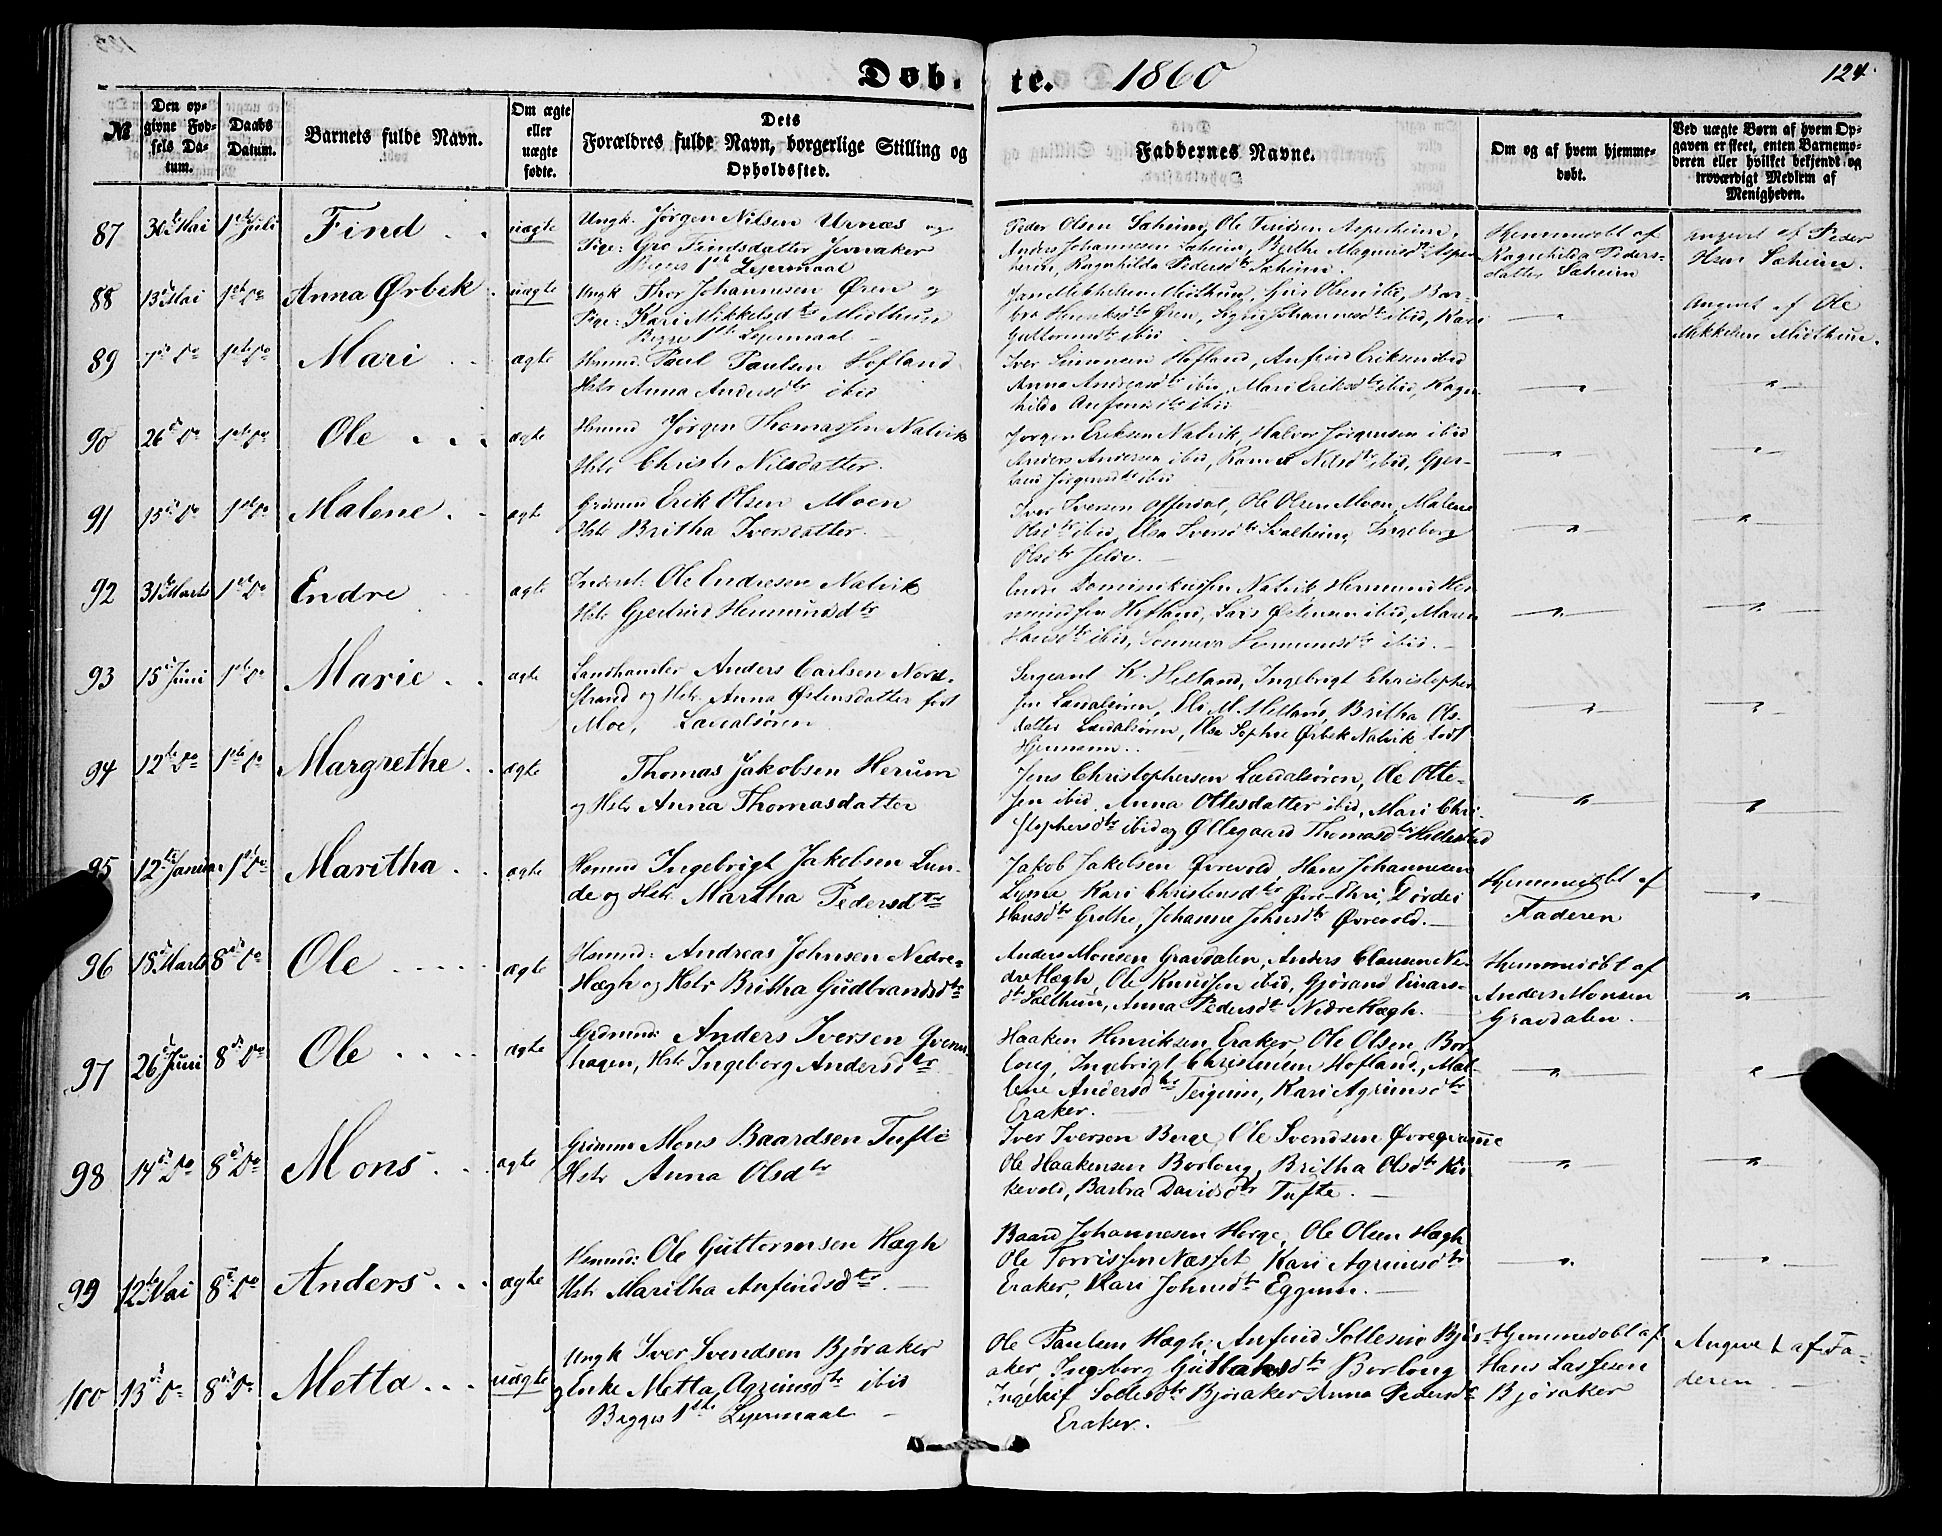 Døb- te. 1860 124
№
Den opgivne Fødsels Datum.
Daabs Datum.
Barnets fulde Navn.
Om ægte eller uægte fødte.
Dets Forældres fulde Navn, borgerlige Stilling og Opholdssted.
Faddernes Navne.
Om og af hvem hjemmedøbt.
Ved uægte Børn af hvem Opgaven er skeet, enten Barnemoderen eller hvilket bekjendt og troværdigt Medlem af Menigheden.
87 30te Mai 1ste Juli Find uægte
Ungk. Jørgen Nilsen Urnæs og
Pige: Gro Findsdatter
Begges 1ste Lejermaal
Peder Olsen Saheim, Ole
Anders Johannesen Saheim, Brithe
Ragnhilda Pedersdtr Saheim.
Hjemmedøbt af
Ragnhilda Peders-
datter Saheim
Angivet af Peder
Saheim.
88 13de Mai 1ste Do Anna Ørbek uægte
Ungk Thor Johannesen Øren og
Pige: Kari Mikkelsdtr Miolhum
Begges 1ste Lejermaal
Øren, Sigrid Johannesdtr ibid, Kari
Guttormsdtr ibid
Angivet af Ole
Mikkelsen Miolhum.
89 7de Do 1ste Do Mari ægte
Hmnd. Poul Paulsen Hofland
Hstr Anna Andersdtr ibid
Iver Simonsen Hofland, Anfind Eriksen ibid
Anna Andersdtr ibid, Mari Eriksdtr ibid, Ragn-
hilda Anfinsdtr ibid
90 26de Do 1ste Do Ole ægte
Hmnd Jørgen Thomassen Natvik
Hstr Christi Nilsdatter.
Jørgen Eriksen Natvik, Halvor Jørgensen ibid
Anders Andersen ibid, Nilsdtr ibid, Gjer-
trud Jørgensdtr ibid
91 15de Do 1ste Do Malene ægte
Grdmnd Erik Olsen Moen
Hstr Britha Iversdatter.
Iver Iversen Offerdal, Ole Olsen Moen, Malene
Olsdtr ibid, Elsa Iversdtr Skalheim, Ingeborg
Olsdtr
92 31te Marts 1ste Do Endre ægte
Inderst: Ole Endresen Natvik
Hstr Gjertrud Hermundsdtr
Endre Dominikussen Natvik, Hermund Her-
mundsen Hofland, Lars Østensen ibid, Maren
Hansdtr ibid, Hermundsdtr ibid.
93 15de Juni 1ste Do Marie ægte
Landhandler Anders Carlsen Nord-
strand og Hstr Anna Østensdatter født
Moe, Lærdalsøren
Sergeant K. Hetland, Ingebrigt Christopher-
sen Lærdalsøren, Eli M. Hetland, Britha Ols-
datter Lærdalsøren, Elsa Sophie Ørbek Natvik født
Hjermann.
94 12te Do 1ste Do Margrethe ægte
Thomas Jakobsen Herum
og Hstr Anna Thomasdatter
Jens Christophersen Lærdalsøren, Ole Otte-
sen ibid, Anna Ottesdatter ibid, Mari Chri-
stophersdtr ibid og Øllegaard Thomasdtr Hellestad
95 12te Januar 1ste Do Maritha ægte
Hmnd Ingebrigt Jakobsen Lun-
de og Hstr. Martha Pedersdtr
Jakob Jakobsen Øvrevold, Hans Johannesen
Kari Christensdtr Dordei
Hansdtr Grøthe, Johanne Johnsdtr Øvrevold.
Hjemmedøbt af
Faderen
96 18de Marts 8de Do Ole ægte
Hsmnd: Andreas Johnsen Nedre-
Hægh og Hstr Britha Gudbrandsdtr
Anders Monsen Gravdalen, Anders Clausen Ne-
dre Hægh, Ole Knudsen ibid, Gjørand Einars-
dtr Sælthun, Anna Pedersdtr Nedre Hægh.
Hjemmedøbt af
Anders Monsen
Gravdalen.
97 26de Juni 8de Do Ole ægte
Grdmnd: Anders Iversen
hagen, Hstr Ingeborg Andersdtr
Haaken Henriksen Eraker, Ole Olsen, Bor-
loug, Ingebrigt Hofland, Mal-
lene Andersdtr Teigum, Kari Agrimsdtr
Eraker.
98 14de Do 8de Do Mons ægte
Grdmnd Mons Baardsen Tufte
Hstr Anna Olsdtr
Iver Iversen Borge, Ole Svendsen Øvreqvamme
Ole Haakensen Borloug, Britha Olsdtr Kir-
kevold, Barbra Davidsdtr Tufte.
99 12te Mai 8de Do Anders ægte
Hmnd: Ole Guttormsen Hægh
Hstr Maritha Anfindsdtr
Baard Johannesen Horge, Ole Olsen Hægh
Ole Torrissen Næsset, Kari Agrimsdtr
Eraker, Kari Johnsdtr Eggum.
100 13de Do 8de Do Metta uægte
Ungk Iver Svendsen Bjøraker
og Enke Metta Agrimsdtr ibid
Begges 1ste Lejermaal
Ole Paulsen Hægh, Anfind Bjør-
aker, Ingeborg Borloug
Bjøraker Anna Pedersdtr
Eraker.
Hjemmedøbt af
Hans Lassesen
Bjøraker
Angivet af Fa-
deren